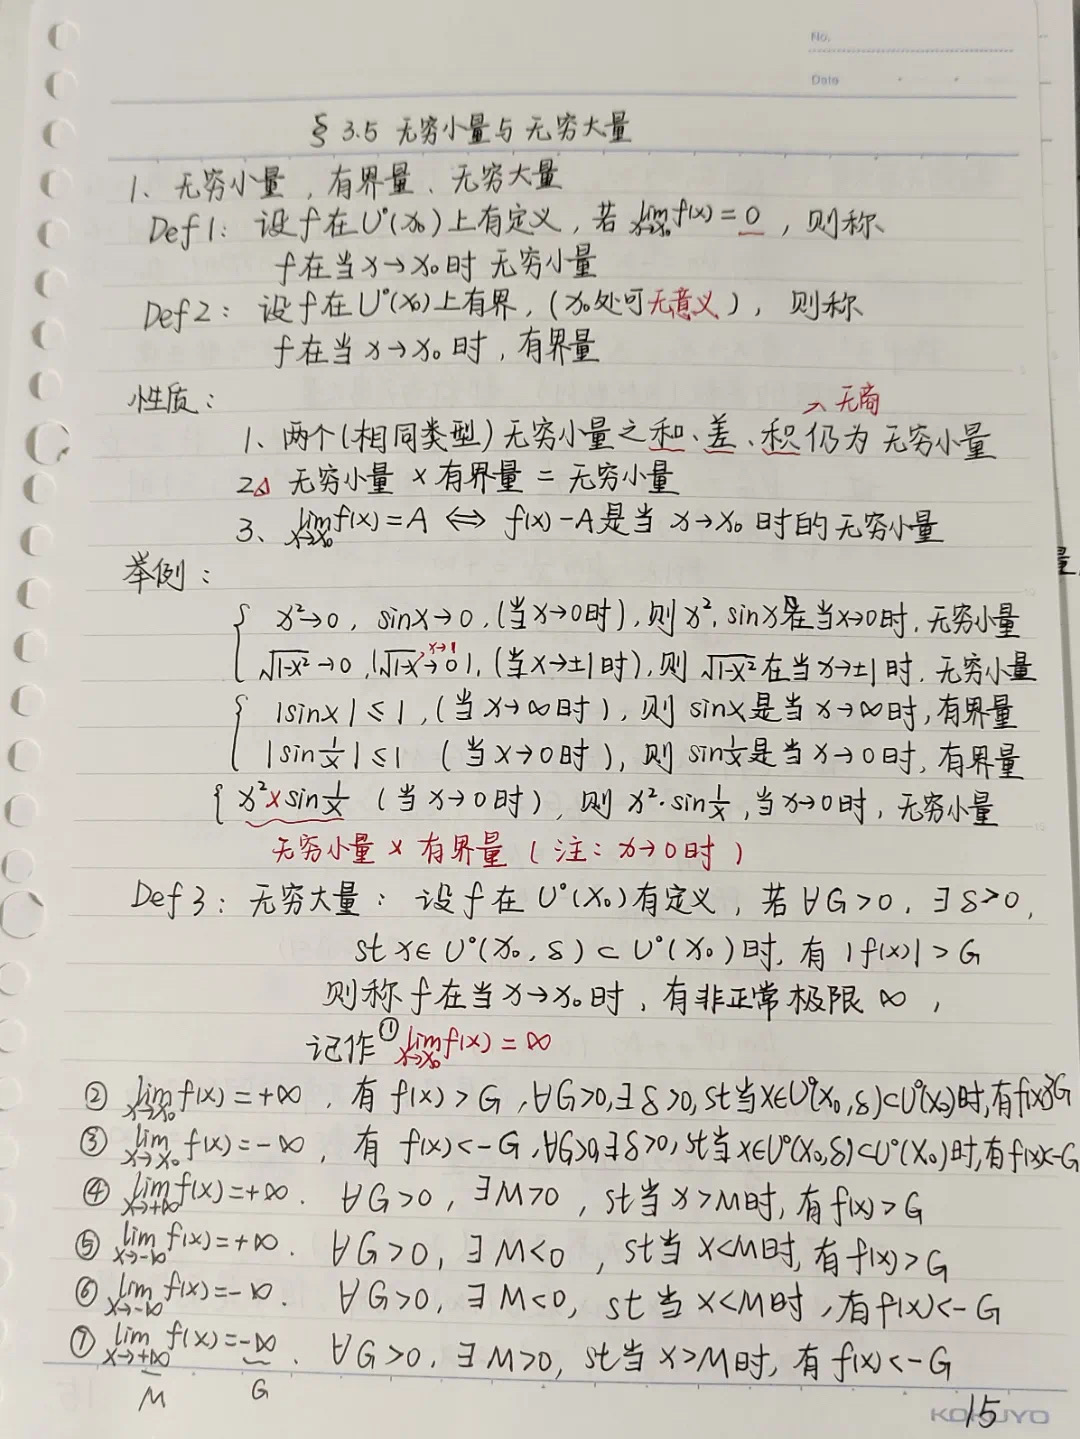 No.
Date
§ 3.5 无穷小量与无穷大量
1、无穷小量，有界量、无穷大量
Def1：设f在U°(x₀)上有定义，若 lim x→x₀ f(x)=0，则称
f在当x→x₀时 无穷小量
Def2：设f在U°(x₀)上有界，(x₀处可无意义)，则称
f在当x→x₀时，有界量
性质：
→无商
1、两个(相同类型)无穷小量之和、差、积仍为 无穷小量
2△ 无穷小量×有界量=无穷小量
3、lim x→x₀ f(x)=A ⇔ f(x)-A是当x→x₀时的无穷小量
举例：
{ x²→0，sinx→0，(当x→0时)，则x²，sinx是在当x→0时，无穷小量
√1-x²→0，|√1-x →0|，x→1 (当x→±1时)，则√1-x²在当x→±1时，无穷小量
{ |sinx|≤1，(当x→∞时)，则sinx是当x→∞时，有界量
|sin1/x|≤1 (当x→0时)，则sin1/x是当x→0时，有界量
{ x²×sin1/x (当x→0时)，则x²·sin1/x，当x→0时，无穷小量
无穷小量×有界量(注：x→0时)
Def3：无穷大量：设f在U°(x₀)有定义，若∀G>0，∃δ>0，
st x∈U°(x₀,δ)⊂U°(x₀)时，有|f(x)|>G
则称f在当x→x₀时，有非正常极限∞，
记作①lim x→x₀ f(x)=∞
② lim x→x₀ f(x)=+∞，有f(x)>G，∀G>0，∃δ>0，st当x∈U°(x₀,δ)⊂U°(x₀)时，有f(x)>G
③ lim x→x₀ f(x)=-∞，有f(x)<-G，∀G>0，∃δ>0，st当x∈U°(x₀,δ)⊂U°(x₀)时，有f(x)<-G
④ lim x→+∞ f(x)=+∞. ∀G>0，∃M>0，st当x>M时，有f(x)>G
⑤ lim x→-∞ f(x)=+∞. ∀G>0，∃M<0，st当x<M时，有f(x)>G
⑥ lim x→-∞ f(x)=-∞. ∀G>0，∃M<0，st当x<M时，有f(x)<-G
⑦ lim x→+∞ f(x)=-∞. ∀G>0，∃M>0，st当x>M时，有f(x)<-G
M G
15
KOKUYO